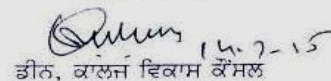 14-7-15
ਡੀਨ, ਕਾਲਜ ਵਿਕਾਸ ਕੌਂਸਲ